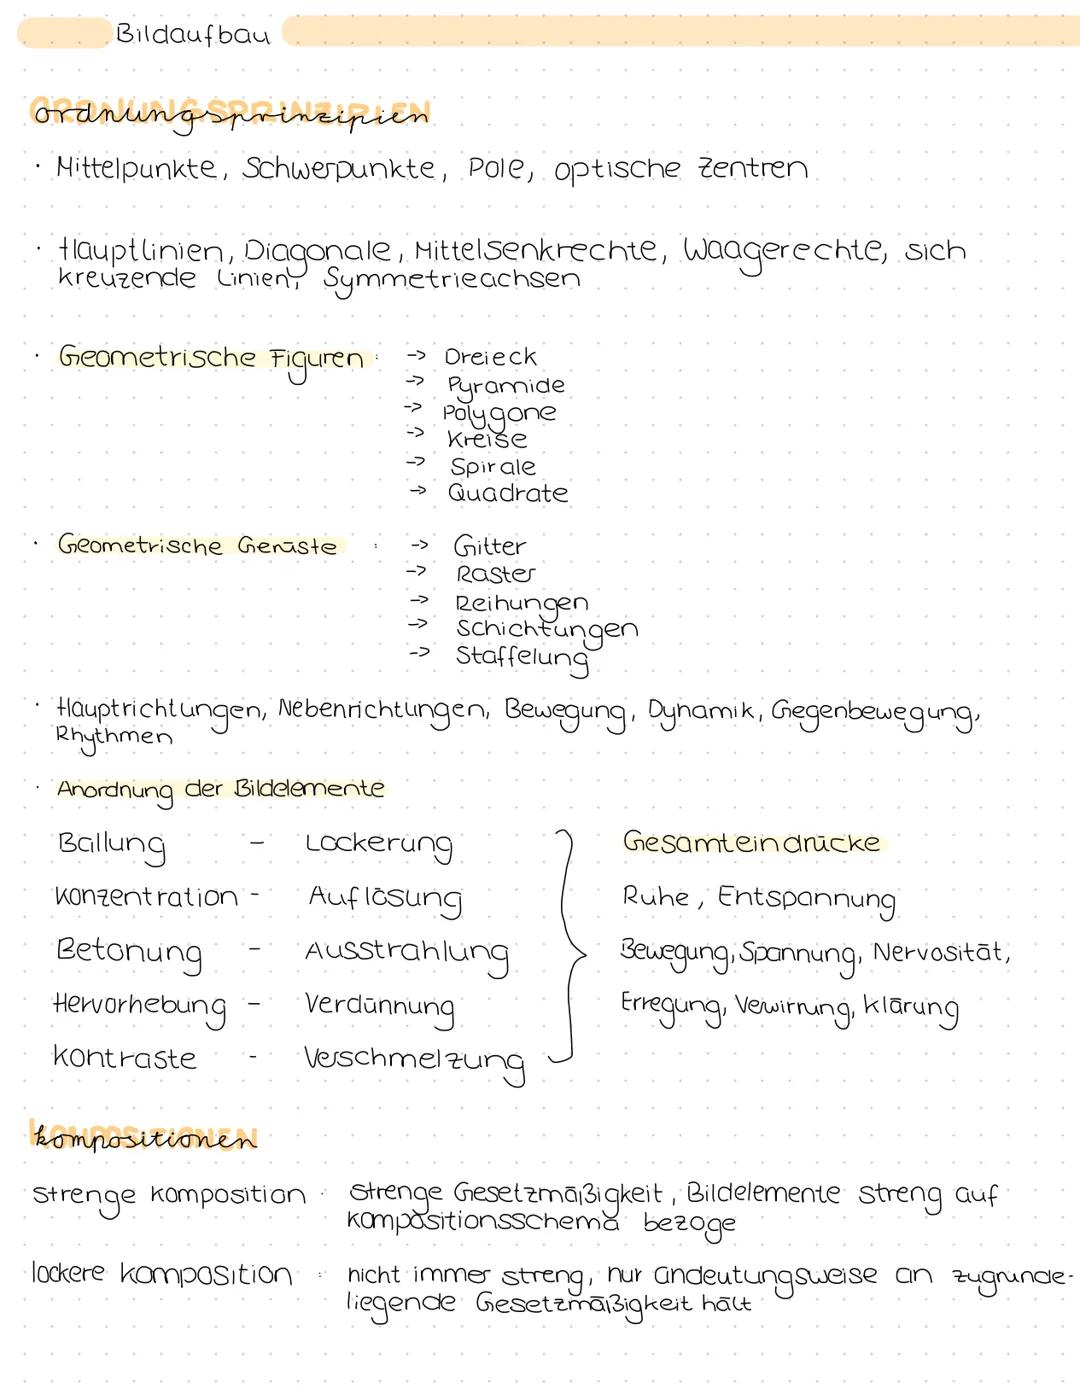 Bildaufbau
ORDNUNGSPRINZIPIEN
ordnungsprinzipien
· Mittelpunkte, Schwerpunkte, Pole, optische Zentren
· Hauptlinien, Diagonale, Mittelsenkrechte, Waagerechte, sich
kreuzende Linien, Symmetrieachsen
· Geometrische Figuren : -> Dreieck
-> Pyramide
-> Polygone
-> Kreise
-> Spirale
-> Quadrate
· Geometrische Gerüste : -> Gitter
-> Raster
-> Reihungen
-> Schichtungen
-> Staffelung
· Hauptrichtungen, Nebenrichtungen, Bewegung, Dynamik, Gegenbewegung,
Rhythmen
· Anordnung der Bildelemente
Ballung - Lockerung Gesamteindrücke
Konzentration - Auflösung Ruhe, Entspannung
Betonung - Ausstrahlung Bewegung, Spannung, Nervosität,
Hervorhebung - Verdünnung Erregung, Verwirrung, Klärung
Kontraste - Verschmelzung
KOMPOSITIONEN
kompositionen
strenge Komposition : strenge Gesetzmäßigkeit, Bildelemente streng auf
Kompositionsschema bezoge
lockere Komposition : nicht immer streng, nur andeutungsweise an zugrunde-
liegende Gesetzmäßigkeit hält